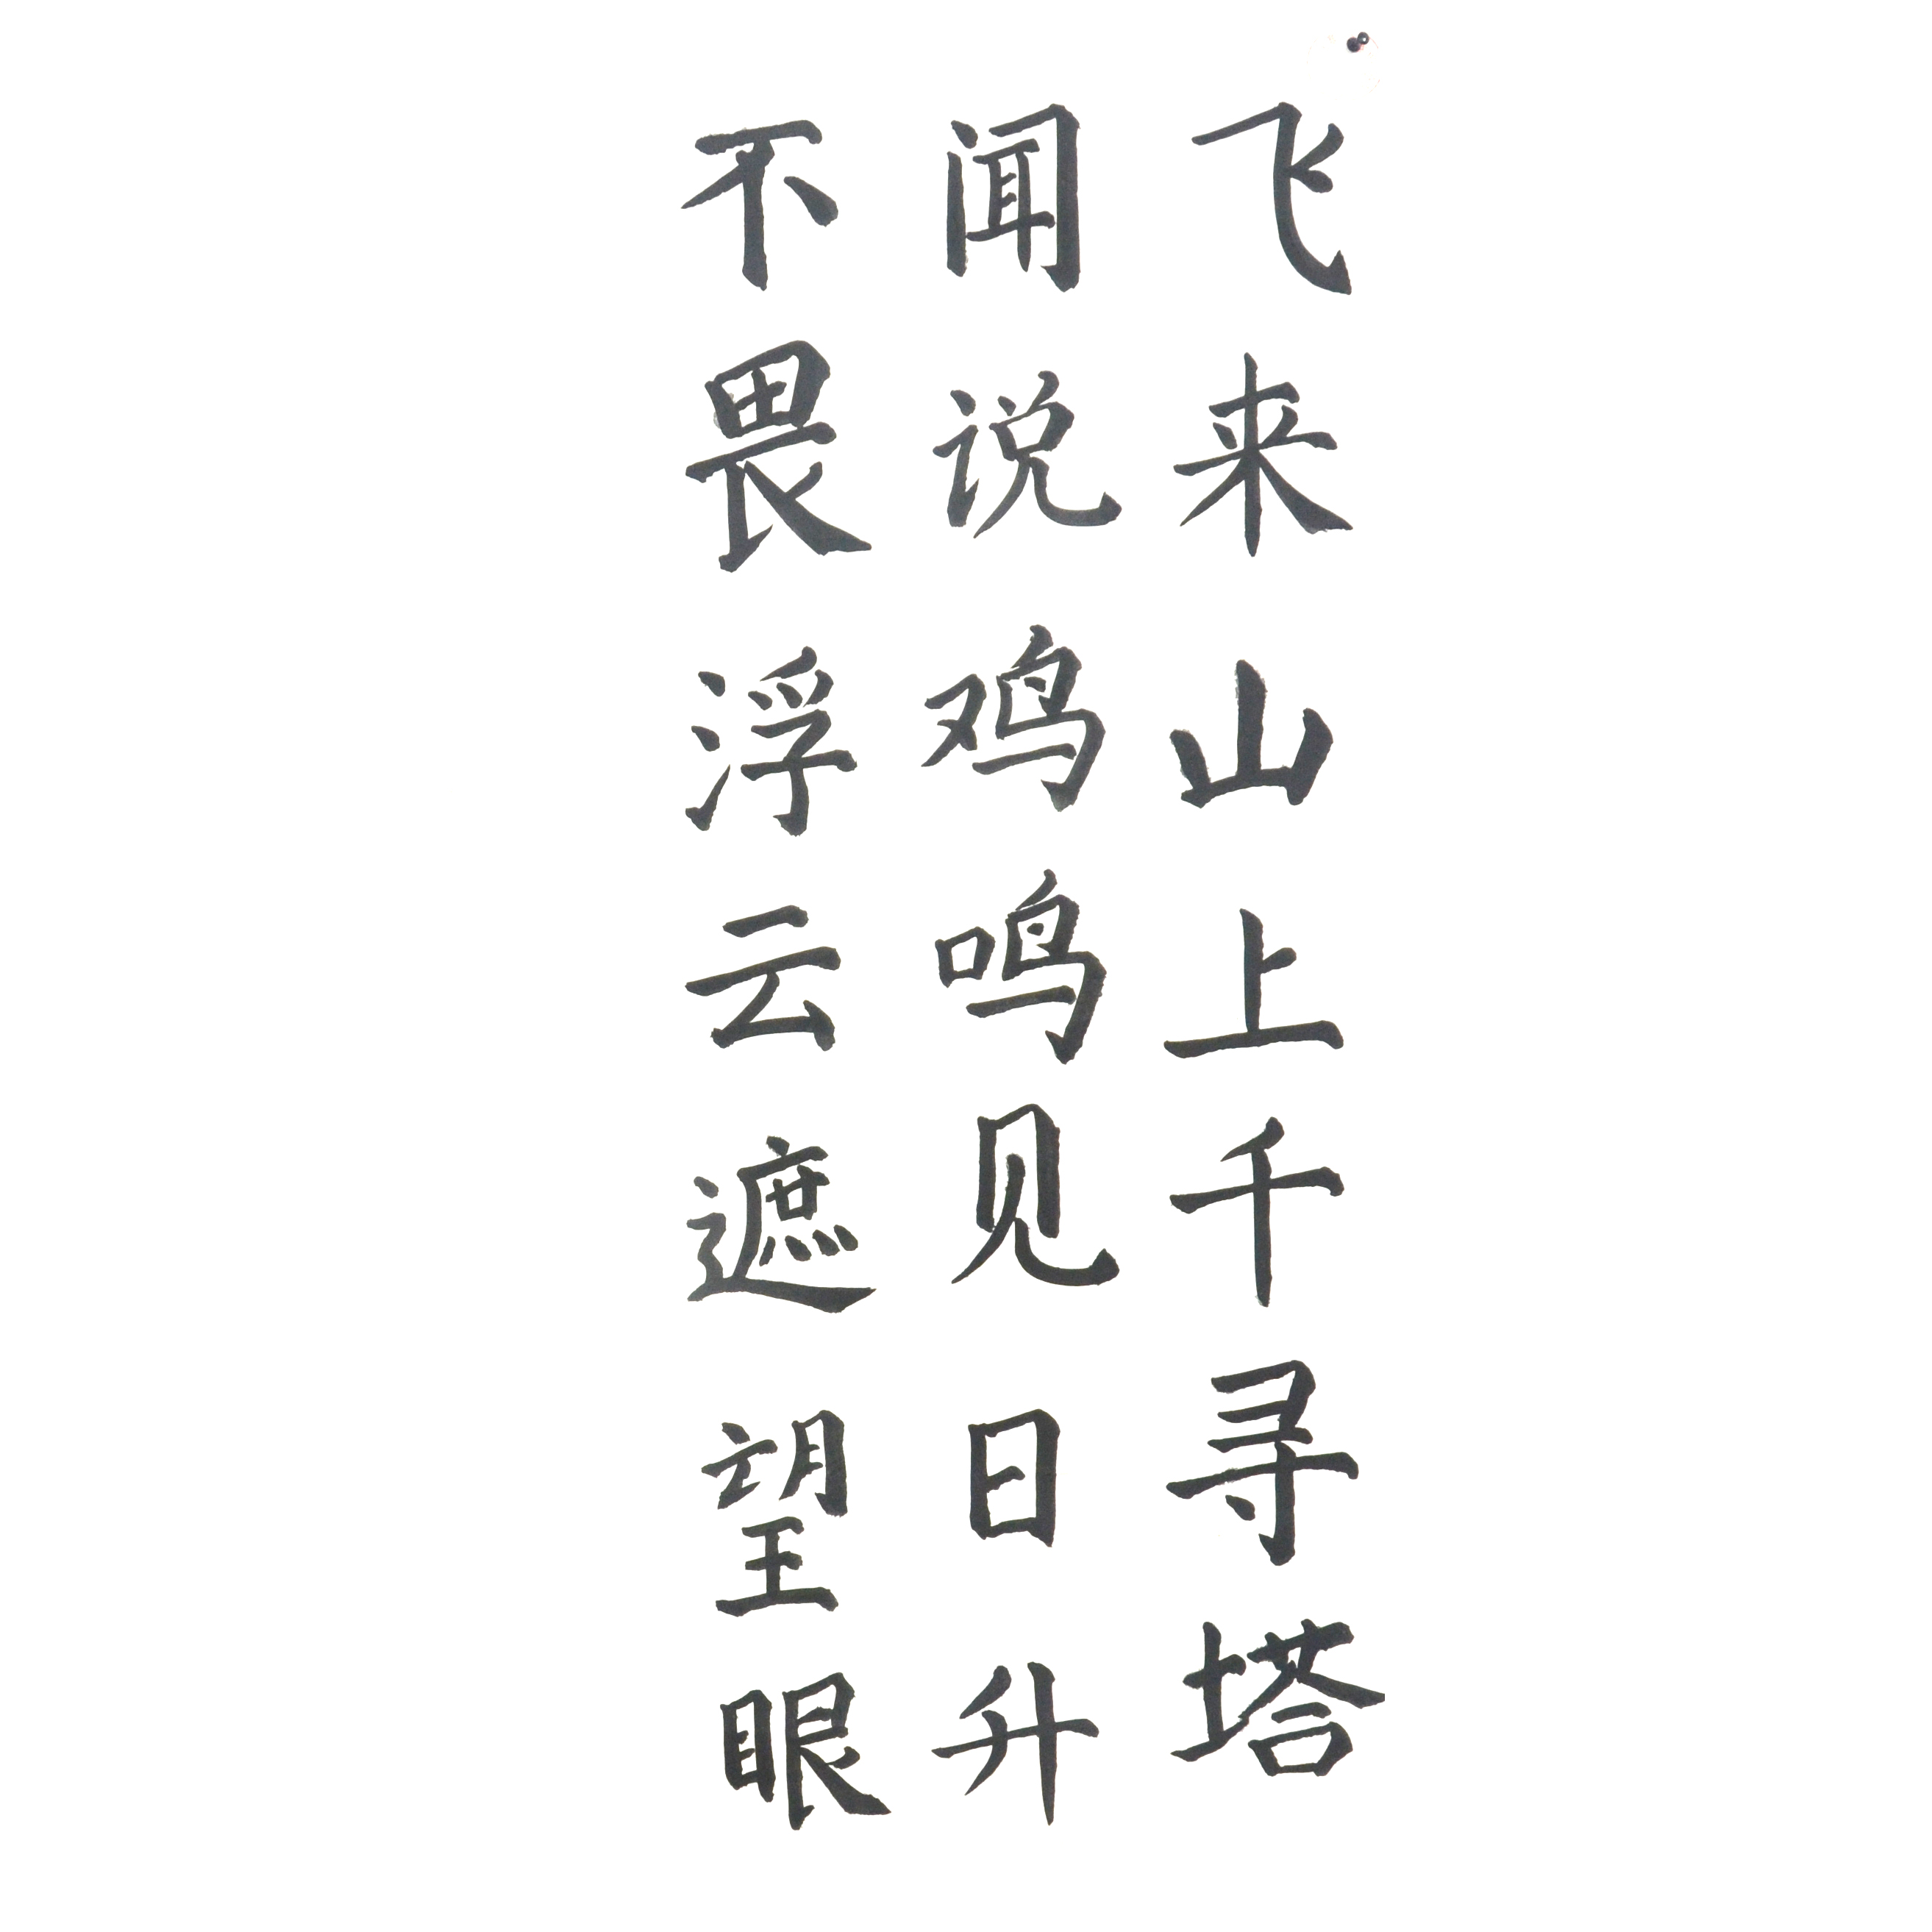 飞来山上千寻塔
闻说鸡鸣见日升
不畏浮云遮望眼